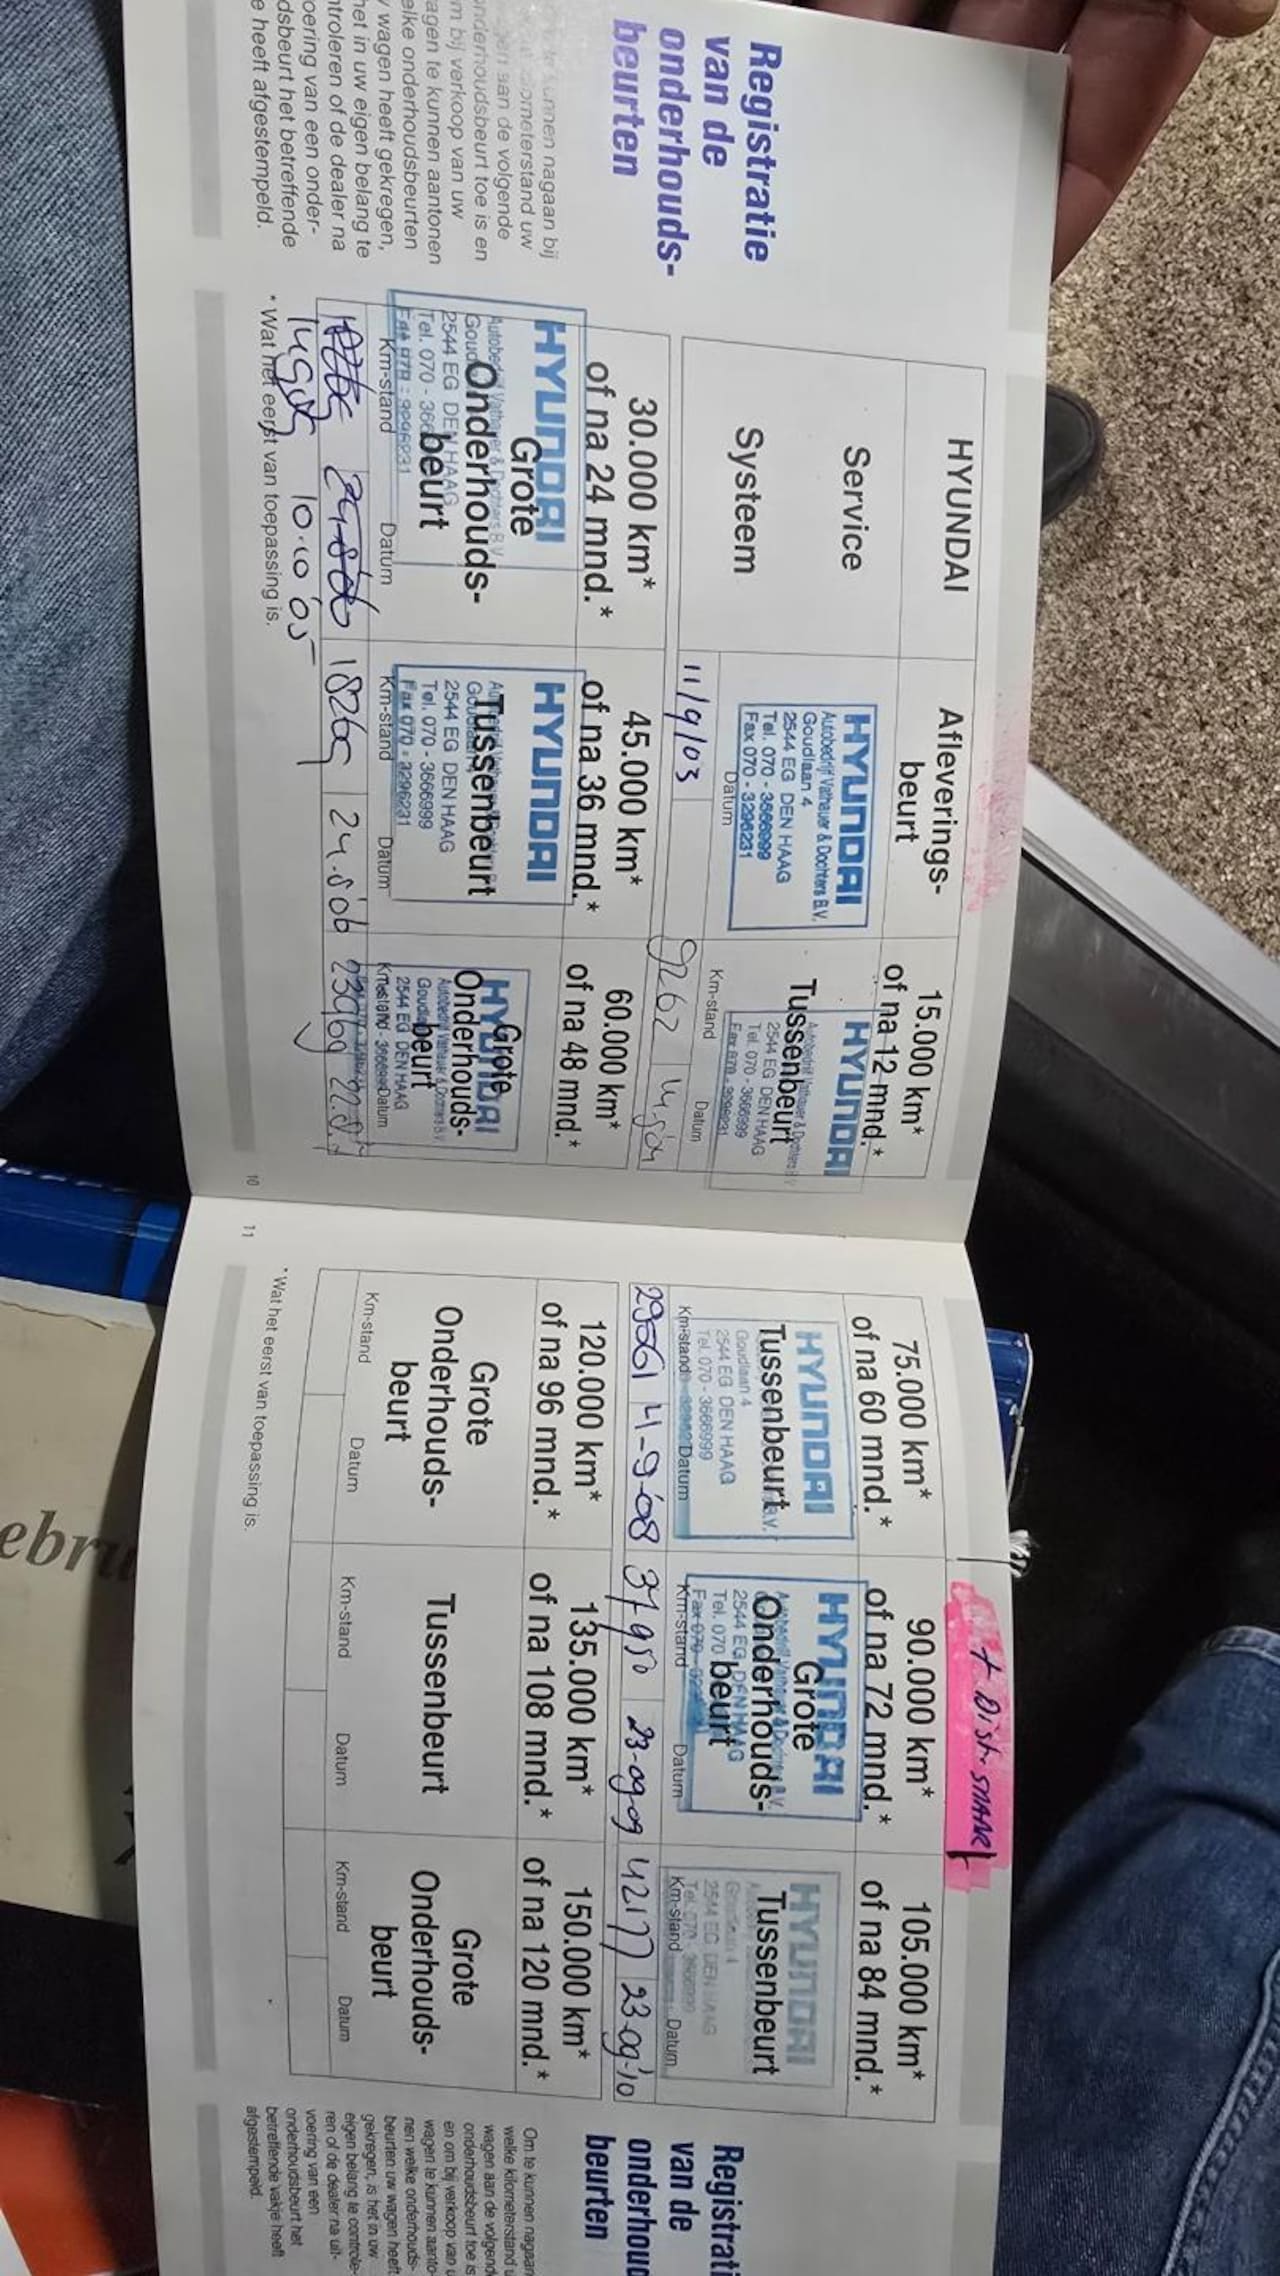 Registratie
van de
onderhouds-
beurten
nnen nagaan bij
ometerstand uw
gen aan de volgende
nderhoudsbeurt toe is en
m bij verkoop van uw
agen te kunnen aantonen
elke onderhoudsbeurten
w wagen heeft gekregen,
het in uw eigen belang te
ntroleren of de dealer na
oering van een onder-
dsbeurt het betreffende
e heeft afgestempeld.
HYUNDAI
Service
Systeem
Afleverings-
beurt
HYUNDAI
Autobedrijf Vathauer & Dochters B.V.
Goudlaan 4
2544 EG DEN HAAG
Tel. 070 - 3666999
Fax 070 - 3296231
Datum
11/9/03
15.000 km*
of na 12 mnd.*
HYUNDAI
Tussenbeurt
2544 EG DEN HAAG
Tel. 070 - 3666999
Fax 070 - 3296231
Km-stand Datum
9262
30.000 km*
of na 24 mnd.*
HYUNDAI
Grote
Onderhouds-
beurt
Autobedrijf Vathauer & Dochters B.V.
2544 EG DEN HAAG
Km-stand Datum
10.10'05
45.000 km*
of na 36 mnd.*
HYUNDAI
Tussenbeurt
2544 EG DEN HAAG
Tel. 070 - 3666999
Fax 070 - 3296231
Km-stand Datum
18269 24.8'06
60.000 km*
of na 48 mnd.*
HYUNDAI
Grote
Onderhouds-
beurt
2544 EG DEN HAAG
Km-stand Datum
* Wat het eerst van toepassing is.
10
11
+ Distr. SNAAR
75.000 km*
of na 60 mnd.*
HYUNDAI
Tussenbeurt
Goudlaan 4
2544 EG DEN HAAG
Tel. 070 - 3666999
Km-stand Datum
29661 4-9-'08
90.000 km*
of na 72 mnd.*
HYUNDAI
Grote
Onderhouds-
beurt
2544 EG DEN HAAG
Tel. 070
Km-stand Datum
37950 23-09-09
105.000 km*
of na 84 mnd.*
HYUNDAI
Tussenbeurt
Goudlaan 4
2544 EG DEN HAAG
Tel. 070 - 3666999
Km-stand Datum
42177 23-09-'10
120.000 km*
of na 96 mnd.*
Grote
Onderhouds-
beurt
Km-stand Datum
135.000 km*
of na 108 mnd.*
Tussenbeurt
Km-stand Datum
150.000 km*
of na 120 mnd.*
Grote
Onderhouds-
beurt
Km-stand Datum
* Wat het eerst van toepassing is.
Registrati
van de
onderhoud
beurten
Om te kunnen nagaan
welke kilometerstand u
wagen aan de volgend
onderhoudsbeurt toe is
en om bij verkoop van u
wagen te kunnen aanto-
nen welke onderhouds-
beurten uw wagen heeft
gekregen, is het in uw
eigen belang te controle-
ren of de dealer na uit-
voering van een
onderhoudsbeurt het
betreffende vakje heeft
afgestempeld.
ebru